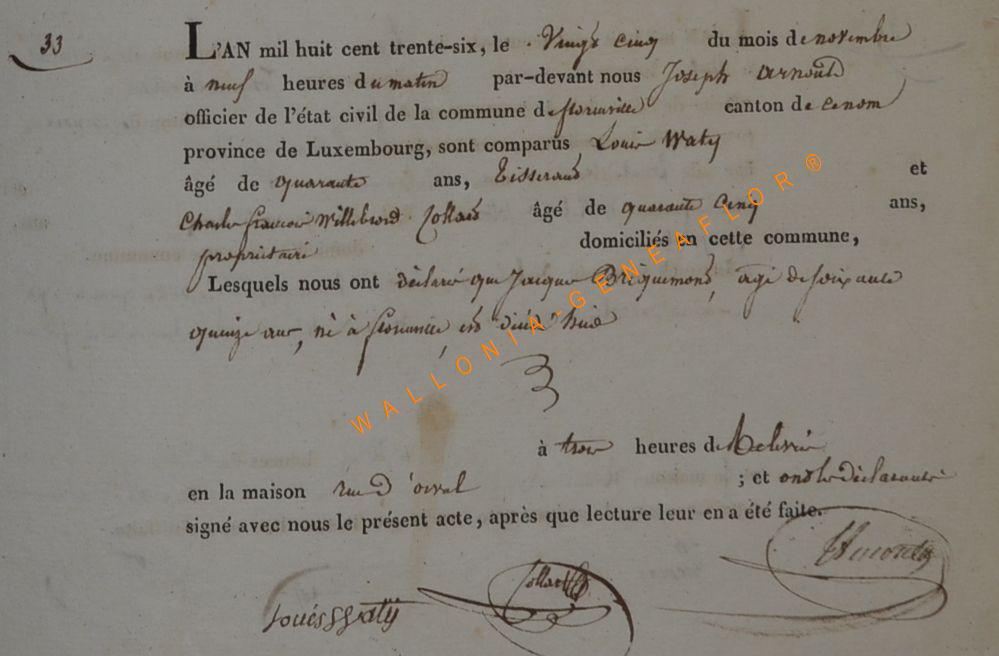 33
L'AN mil huit cent trente-six, le Vingt cinq du mois de novembre
à neuf heures du matin par-devant nous Joseph Arnould
officier de l'état civil de la commune de florenville canton de
province de Luxembourg, sont comparus Louis Waty
âgé de quarante ans, Tisserand et
Charles francois Willebrord Collard âgé de quarante Cinq ans,
propriétaire domiciliés en cette commune,
Lesquels nous ont déclaré que Jacque Briquemont, agé de soixante
quinze ans, né à florenville, est décédé hier
à trois heures de
en la maison rue d'orval ; et ont les déclarants
signé avec nous le présent acte, après que lecture leur en a été faite.
Louis Waty Collard
WALLONIA-GENEAFLOR ®